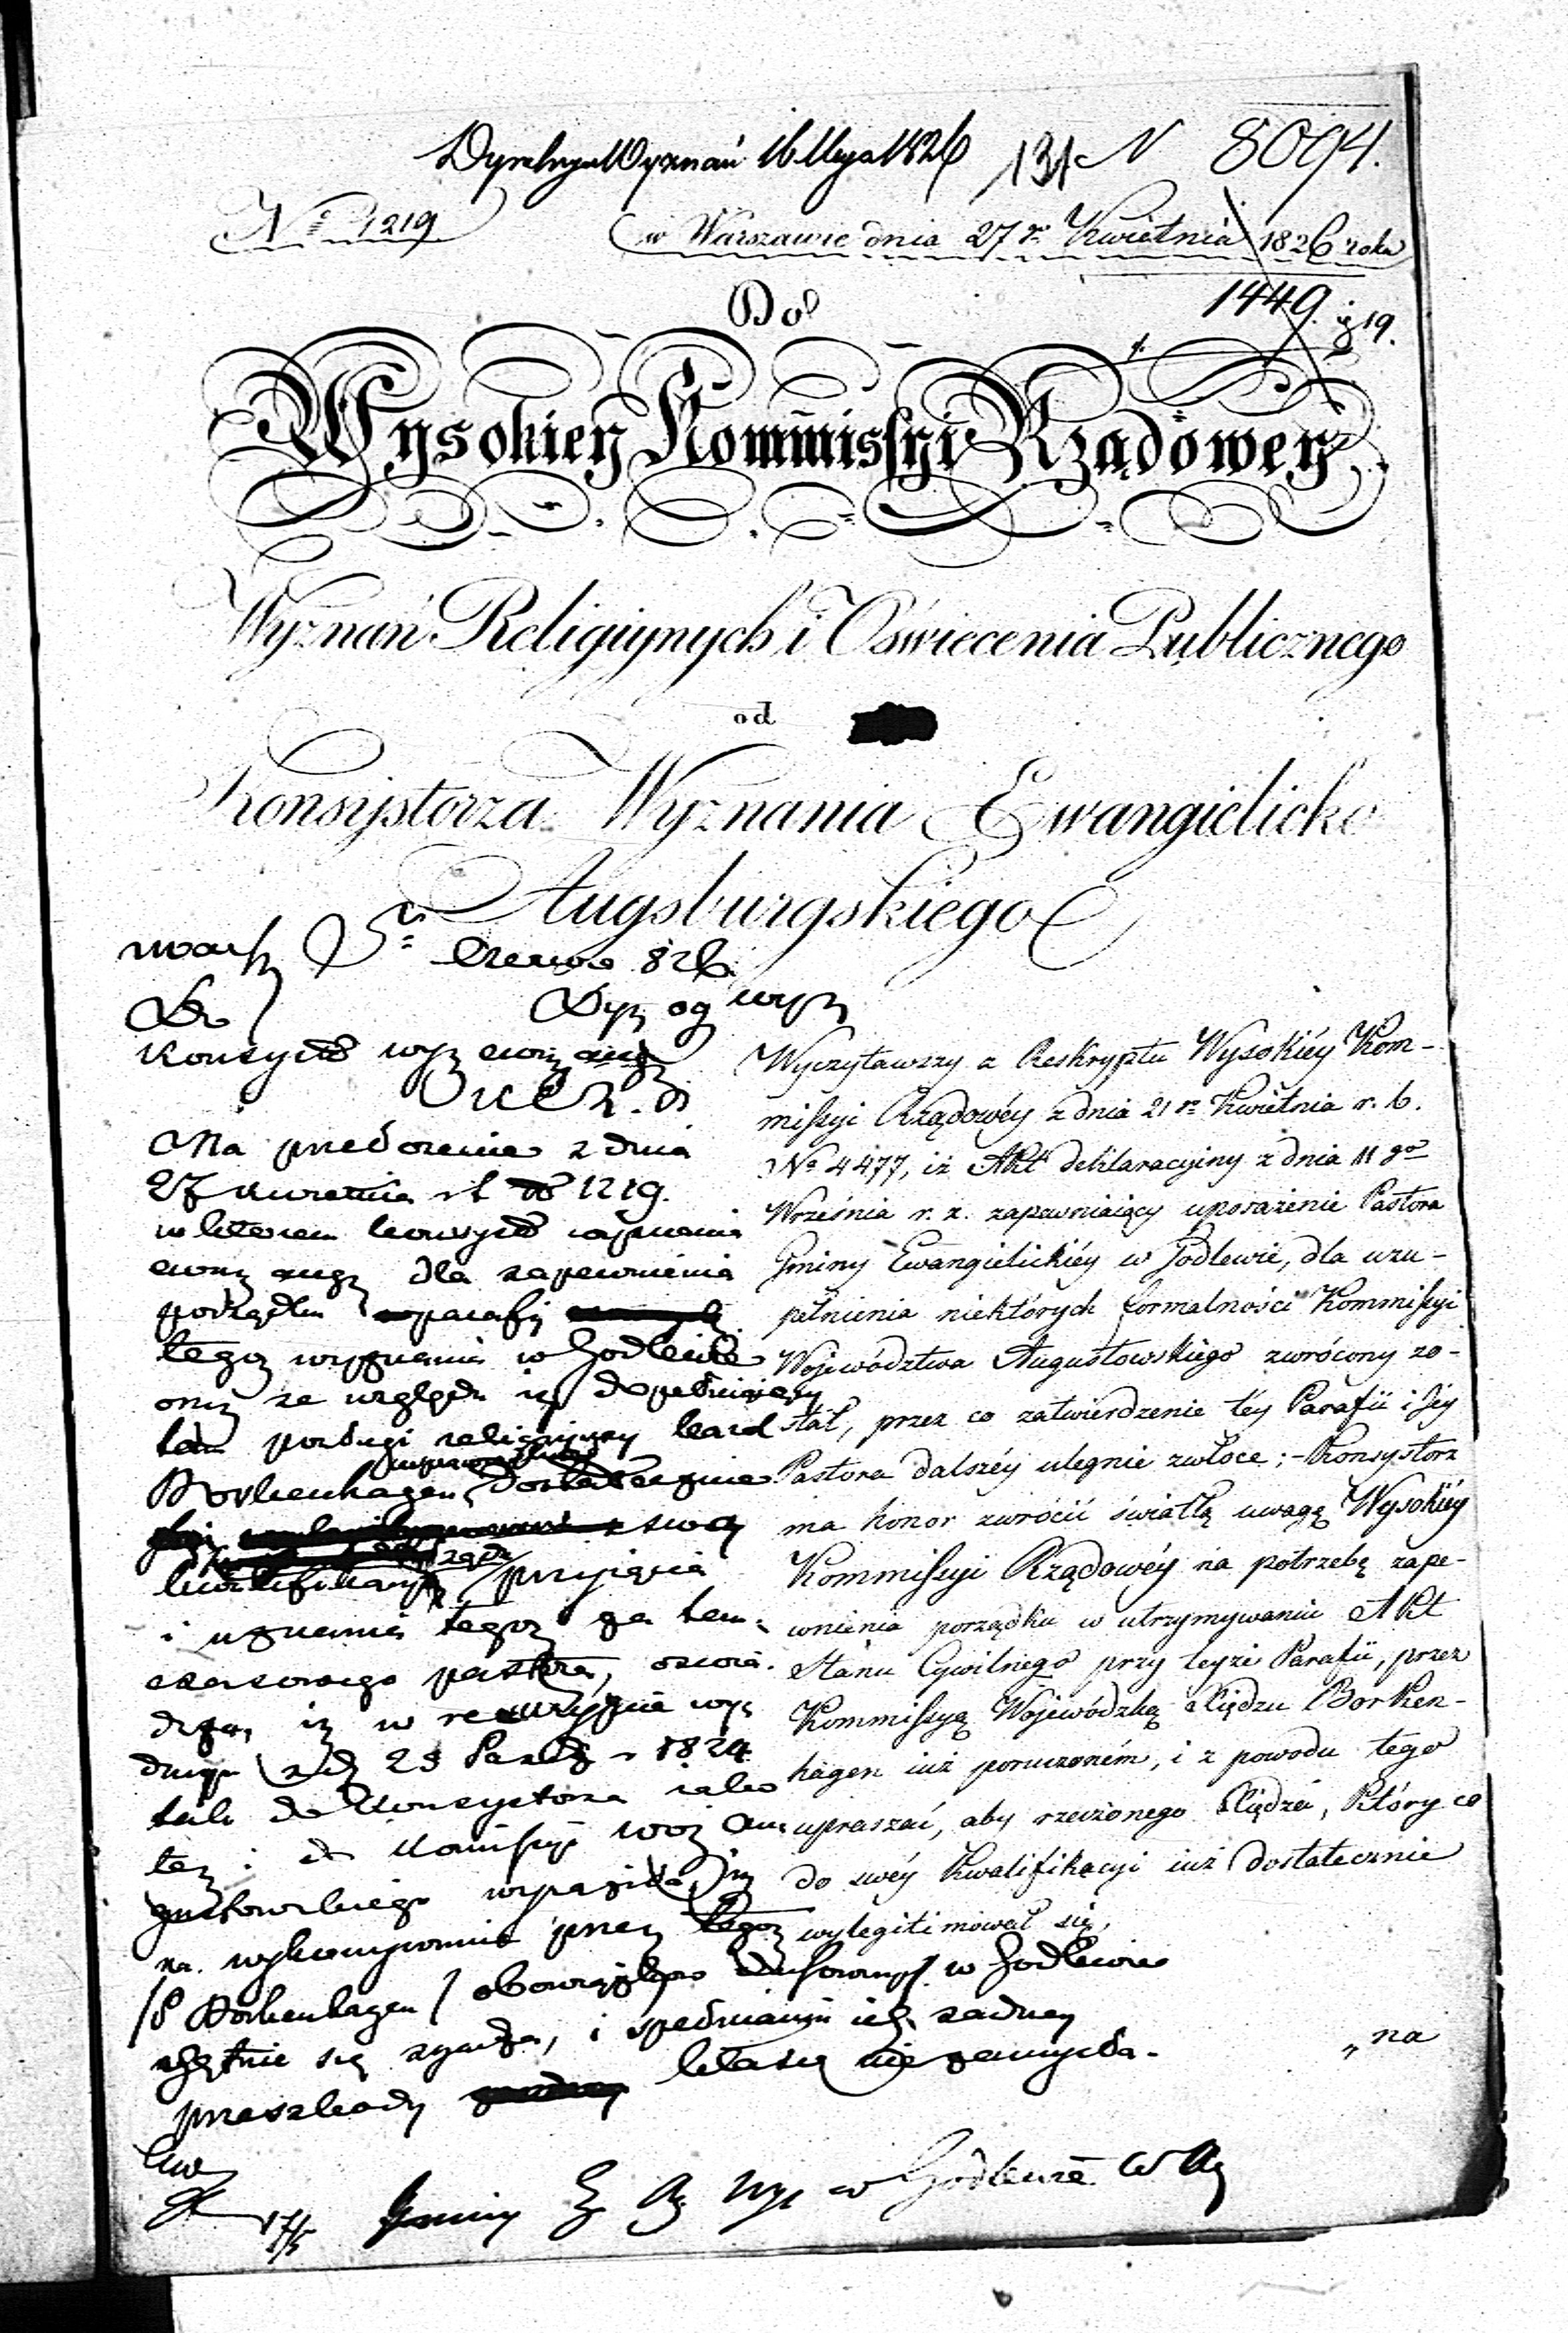 Dyrekcya Wyznań 16 Maja 1826 131 N 8094.
No 1219
w Warszawie dnia 27go Kwietnia 1826 roku
1449
19.
Do
Wysokiey Kommissyi Rządowey
Wyznań Religiynych i Oświecenia Publicznego
od
Konsystorza Wyznania Ewangielicko
Augsburgskiego
Wyczytawszy z Reskryptu Wysokiéy Kom-
missyi Rządowéy z dnia 21go Kwietnia r. b.
No 4477, iż Akt deklaracyiny z dnia 11go
Września r. z. zapewniaiący uposażenie Pastora
Gminy Ewangielickiéy w Godlewie, dla uzu-
pełnienia niektórych formalności Kommissyi
Województwa Augustowskiego zwrócony zo-
stał, przez co zatwierdzenie téy Parafii i Jéy
Pastora dalszéy ulegnie zwłoce; - Konsystorz
ma honor zwrócić światłą uwagę Wysokiéy
Kommissyi Rządowéy na potrzebę zape-
wnienia porządku w utrzymywaniu Akt
Stanu Cywilnego przy teyże Parafii, przez
Kommissyą Wojewódzką Xiędzu Borken-
hagen iuż poruczoném, i z powodu tego
upraszać, aby rzeczonego Xiędza, który co
do swéy Kwalifikacyi iuż dostatecznie
wylegitimował się,
"na
Czerwca 826
Do
Na przedłożenie z dnia
27 Kwietnia r b No 1219.
w którem wyznania
dla zapewnienia
porządku parafij
tegoż wyznania w Godlewie
ze względu iż dopełniaiący
tam posługi religijney
Borkenhagen dostatecznie
swey
kwalifikacyi przyięcia
i uznania tegoż za tem-
czasowego pastora, oswia-
dcza, iż w reskrypcie wy-
danym z d 23 Paźdz r 1824
tak do Konsystorza iako
też i do Komissyi Woj Au-
gustowskiego wyraziła, iż
na wykonywanie przez tegoż
/X Borkenhagen/ obowiązków duchownych w Godlewie
chętnie się zgadza, i w spełnianiu ich żadney
przeszkody kłaść nie zamyśla.
17/5 Gminy w Godlewie